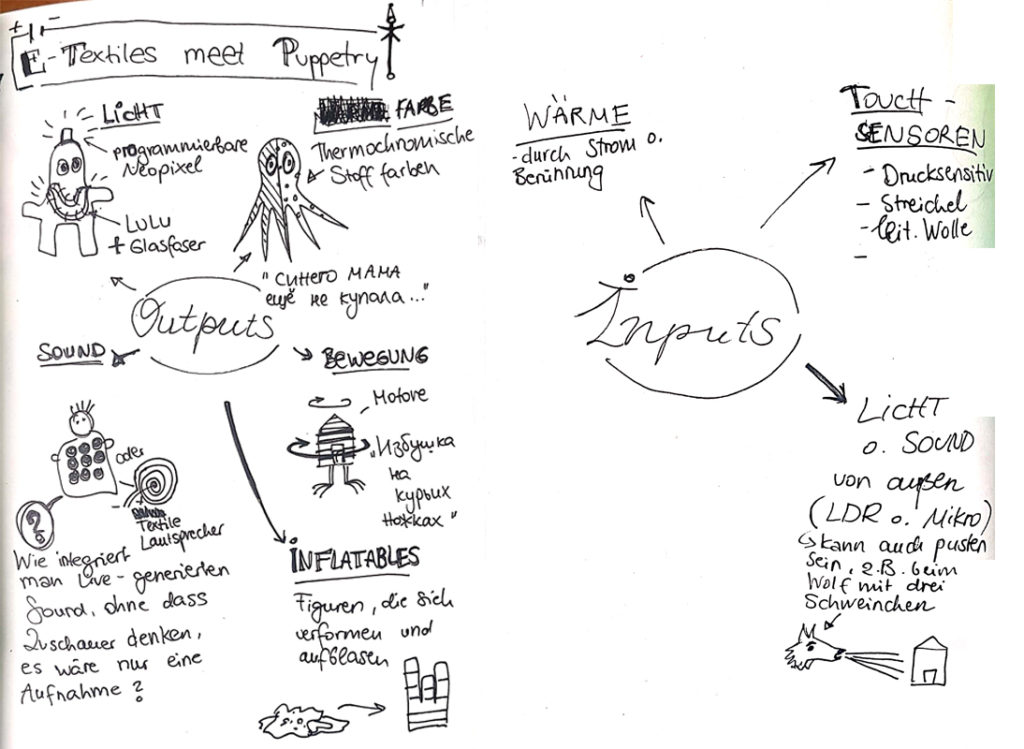 E-Textiles meet Puppetry
LICHT
programmierbare
Neopixel
LULU
+ Glasfaser
FARBE
Thermochromische
Stoff farben
"Синего мама
ещё не купала..."
Outputs
SOUND
oder
Textile
Lautsprecher
?
Wie integriert
man Live-generierten
Sound, ohne dass
Zuschauer denken,
es wäre nur eine
Aufnahme?
BEWEGUNG
Motore
"Избушка
на
курьих
ножках"
INFLATABLES
Figuren, die sich
verformen und
aufblasen
WÄRME
- durch Strom o.
Berührung
TOUCH -
SENSOREN
- Drucksensitiv
- Streichel
- leit. Wolle
-
Inputs
LICHT
o. SOUND
von außen
(LDR o. Mikro)
↳ kann auch pusten
sein, z.B. beim
Wolf mit drei
Schweinchen